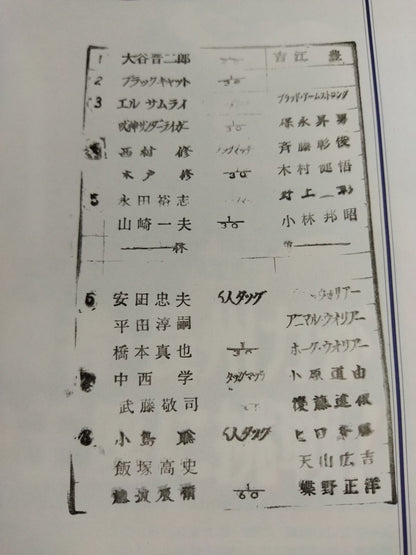 1 大谷晋二郎 吉江 豊
2 ブラックキャット 1/30
3 エル サムライ ブラッド・アームストロング
獣神サンダーライガー 1/30 保永昇男
西村 修 タッグマッチ 斉藤彰俊
木戸 修 1/30 木村健悟
5 永田裕志 野上 彰
山崎一夫 1/30 小林邦昭
休
6 安田忠夫 6人タッグ ウォリアー
平田淳嗣 アニマル・ウォリアー
橋本真也 ホーク・ウォリアー
中西 学 タッグマッチ 小原道由
武藤敬司 後藤達俊
小島 聡 6人タッグ ヒロ斉藤
飯塚高史 天山広吉
1/60 蝶野正洋